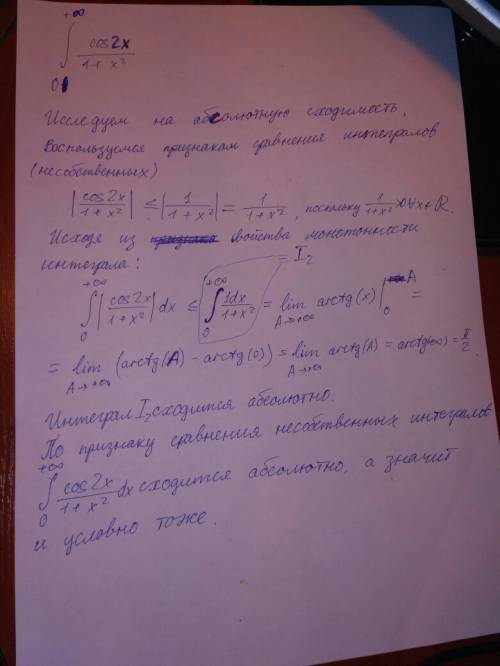 +∞
∫ cos2x / 1+x²
0
Исследуем на абсолютную сходимость,
Воспользуемся признакам сравнения интегралов
(несобственных)
|cos2x / 1+x²| ≤ |1 / 1+x²| = 1 / 1+x², поскольку 1 / 1+x² > 0 ∀x ∈ ℝ.
Исходя из свойства монотонности
интеграла: = I₂
+∞ +∞ A
∫ |cos2x / 1+x²| dx ≤ ∫ 1dx / 1+x² = lim arctg(x) | =
0 0 A→+∞ 0
= lim (arctg(A) - arctg(0)) = lim arctg(A) = arctg(∞) = π/2.
A→+∞ A→+∞
Интеграл I₂ сходится абсолютно.
По признаку сравнения несобственных интегралов
+∞
∫ cos2x / 1+x² dx сходится абсолютно, а значит
0
и условно тоже.